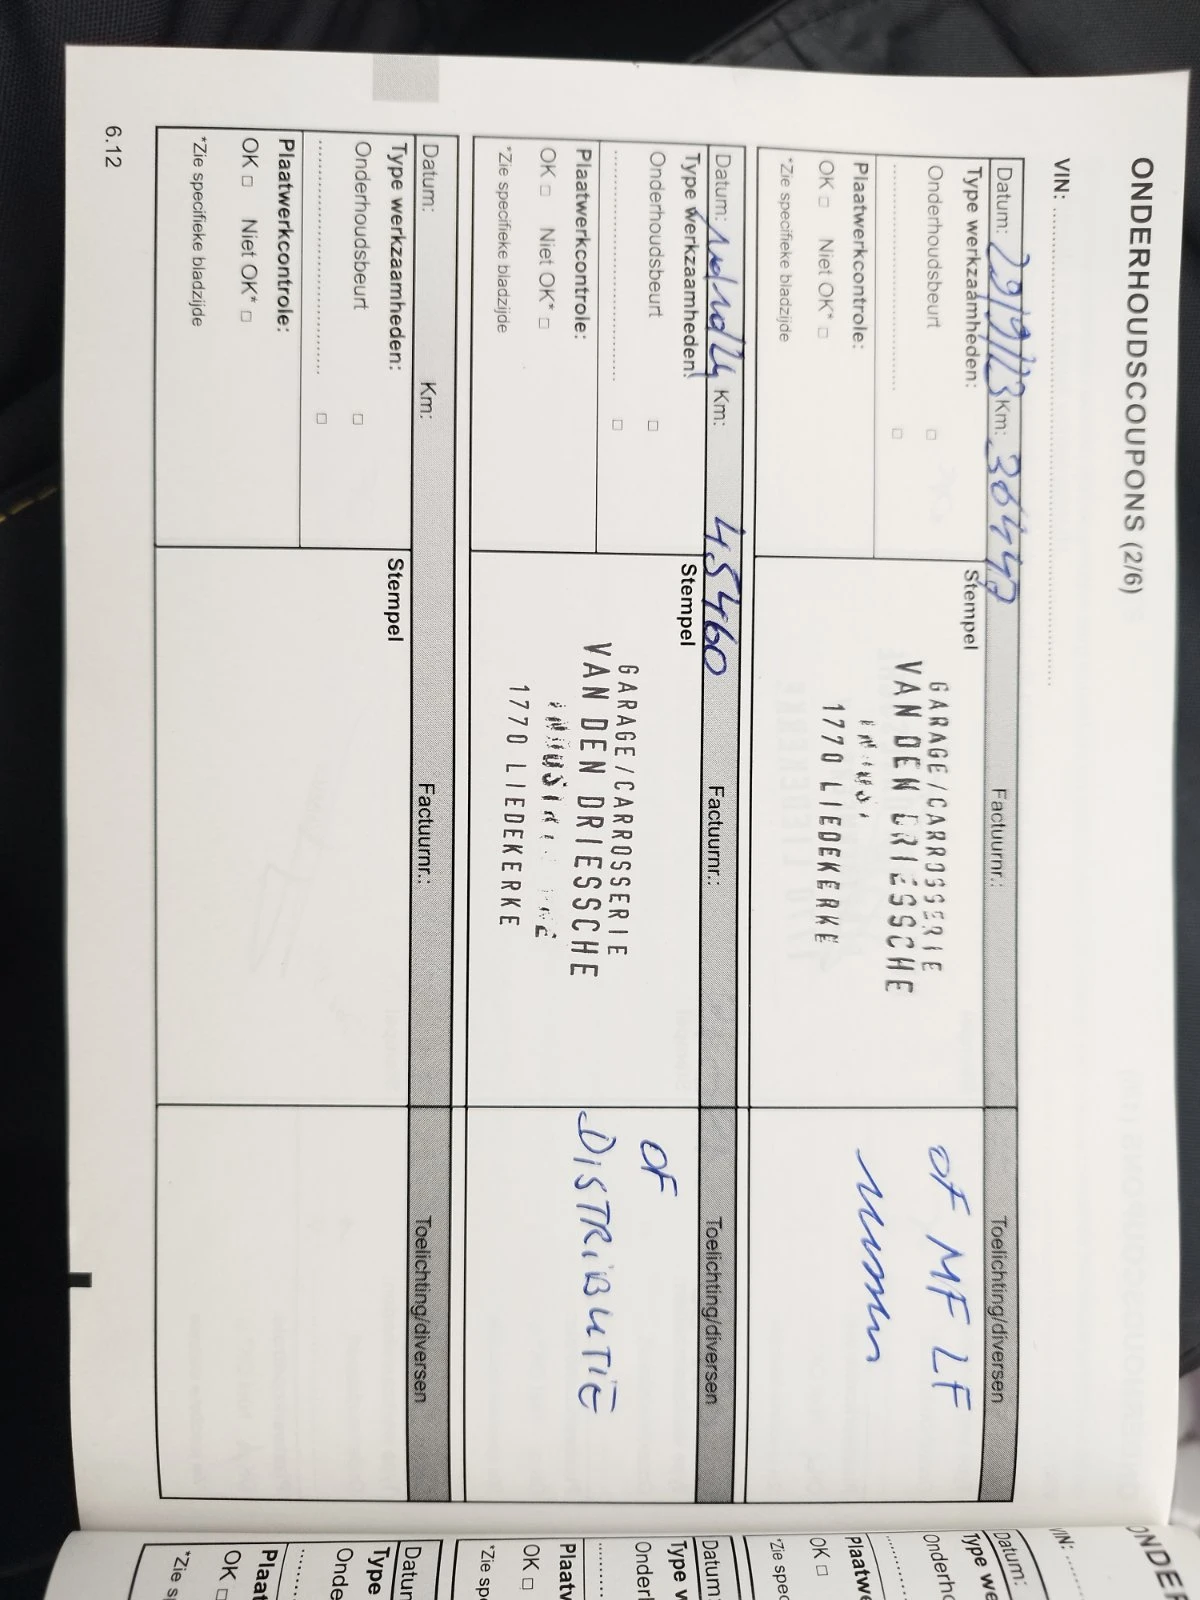 ONDERHOUDSCOUPONS (2/6)
VIN: ........................................
Datum: 29/9/23 Km: 36442 Factuurnr.: Toelichting/diversen
Type werkzaamheden:
Onderhoudsbeurt □
........................................ □
Plaatwerkcontrole:
OK □ Niet OK* □
*Zie specifieke bladzijde
Stempel
GARAGE/CARROSSERIE
VAN DEN DRIESSCHE
1770 LIEDEKERKE
OF MF LF
Datum: Km: 45460 Factuurnr.: Toelichting/diversen
Type werkzaamheden:
Onderhoudsbeurt □
........................................ □
Plaatwerkcontrole:
OK □ Niet OK* □
*Zie specifieke bladzijde
Stempel
GARAGE/CARROSSERIE
VAN DEN DRIESSCHE
1770 LIEDEKERKE
OF
DISTRIBUTIE
Datum: Km: Factuurnr.: Toelichting/diversen
Type werkzaamheden:
Onderhoudsbeurt □
........................................ □
Plaatwerkcontrole:
OK □ Niet OK* □
*Zie specifieke bladzijde
Stempel
6.12
ONDER
VIN: ........
Datum:
Type we
Onderho
Plaatwe
OK □
*Zie spec
Datum:
Type w
Onderh
Plaatw
OK □
*Zie spe
Datum
Type
Onde
Plaat
OK □
*Zie s